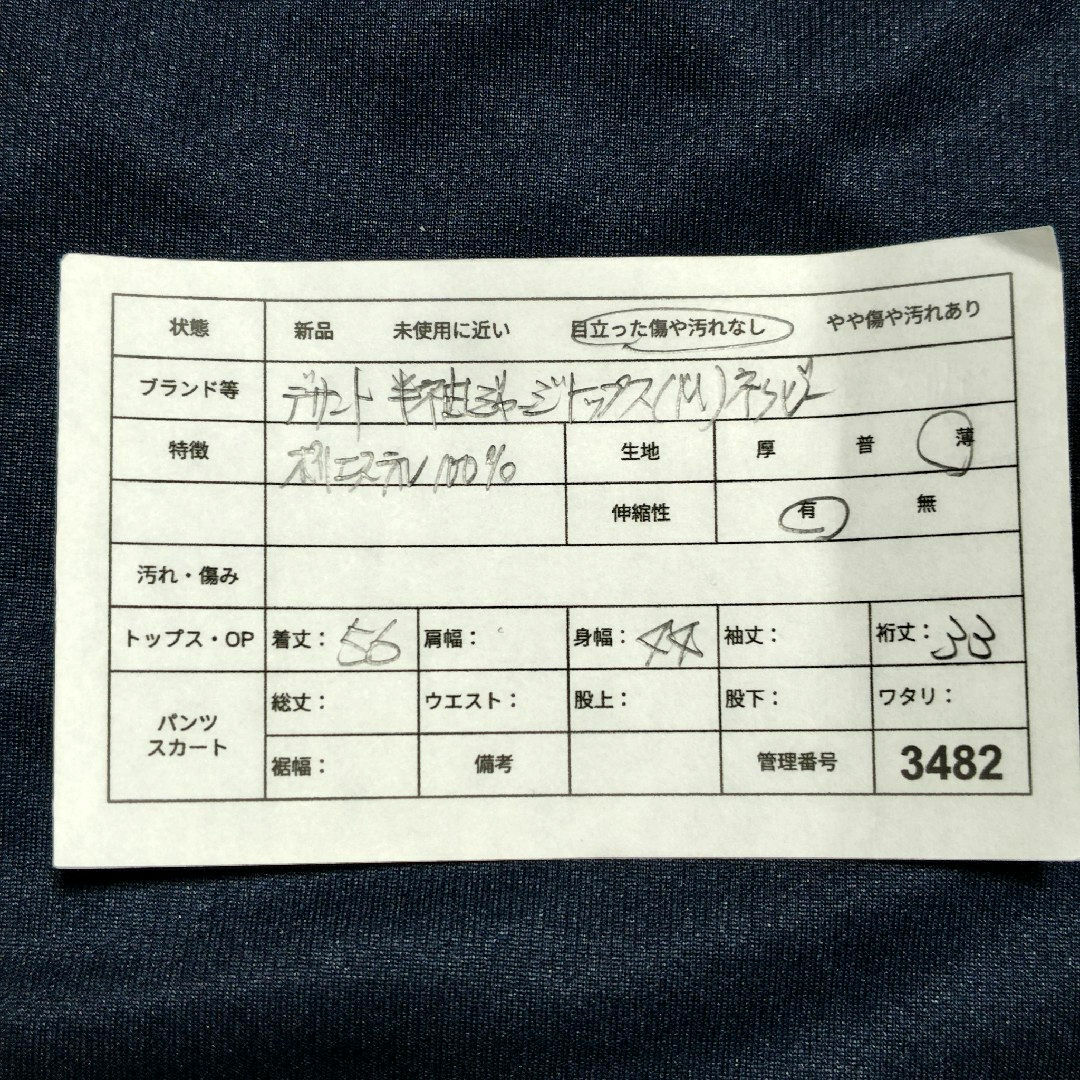 状態 新品 未使用に近い 目立った傷や汚れなし やや傷や汚れあり
ブランド等 デサント 半袖ジャージトップス(M)ネイビー
特徴 ポリエステル100% 生地 厚 普 薄
伸縮性 有 無
汚れ・傷み
トップス・OP 着丈：56 肩幅： 身幅：44 袖丈： 裄丈：33
パンツ
スカート
総丈： ウエスト： 股上： 股下： ワタリ：
裾幅： 備考 管理番号 3482